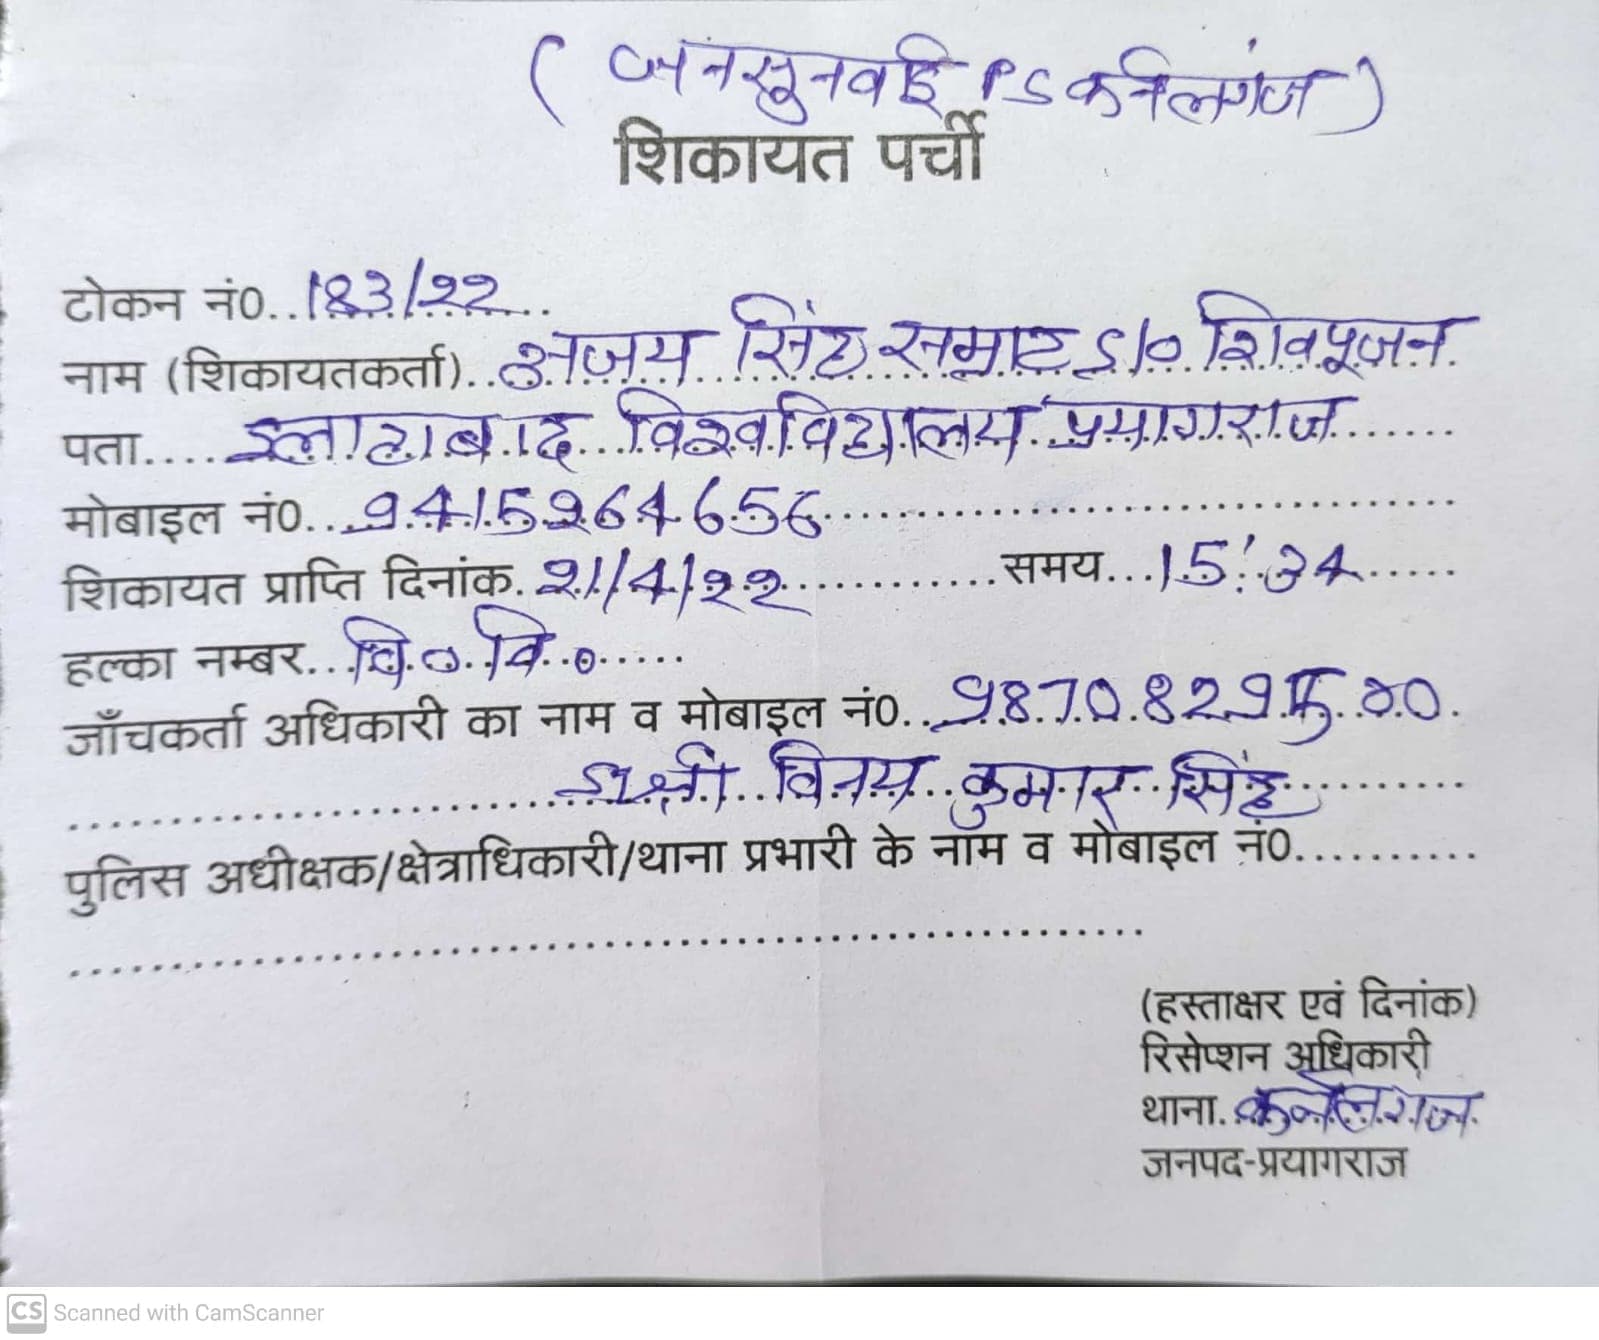 ( जनसुनवाई PS कर्नलगंज )
शिकायत पर्ची
टोकन नं0..183/22
नाम (शिकायतकर्ता)..अजय सिंह सम्राट S/0 शिवपूजन
पता....इलाहाबाद विश्वविद्यालय प्रयागराज
मोबाइल नं0...9415264656
शिकायत प्राप्ति दिनांक. 21/4/22 समय...15:34
हल्का नम्बर... वि0 वि0
जाँचकर्ता अधिकारी का नाम व मोबाइल नं0..
विनय कुमार सिंह
पुलिस अधीक्षक/क्षेत्राधिकारी/थाना प्रभारी के नाम व मोबाइल नं0..........
(हस्ताक्षर एवं दिनांक)
रिसेप्शन अधिकारी
थाना. कर्नलगंज
जनपद-प्रयागराज
CS Scanned with CamScanner